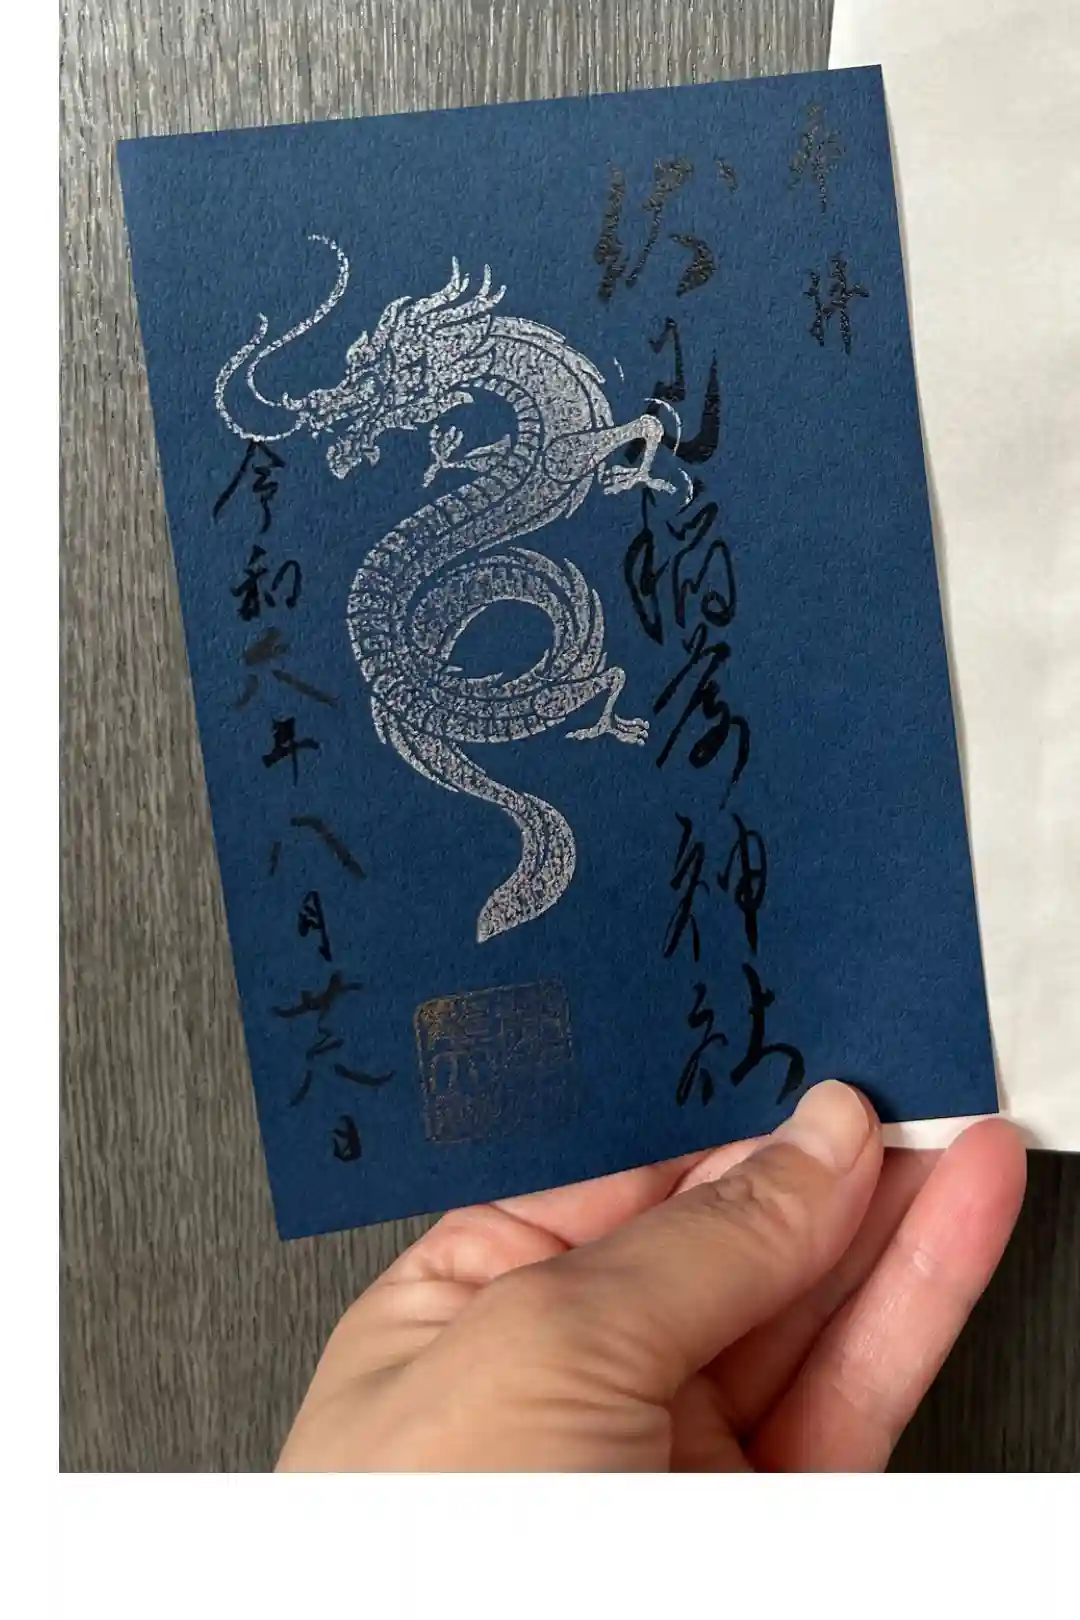 奉拝
伏見稲荷神社
令和六年八月廿六日